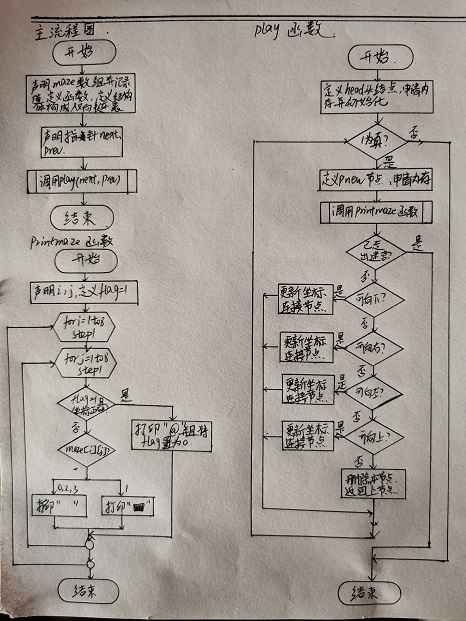 主流程图.
开始
声明maze数组并记录
值,定义函数,定义结构
体构成双向链表
声明指针next,
prev.
调用play(next, prev)
结束
Printmaze 函数
开始
声明i,j,定义flag=1
for i=1 to 8
step1
for j=1 to 8
step1
flag=1且
坐标正确
是
否
打印"@"且将
flag置为0
maze[i][j]?
0,2,3
1
打印"  "
打印"■"
结束
play 函数
开始
定义head头结点,申请内
存并初始化
1为真?
否
是
定义pnew节点,申请内存
调用printmaze函数
已走
出迷宫?
是
否
可向下?
是
更新坐标,
连接节点
否
可向右?
是
更新坐标
连接节点.
否
可向左?
是
更新坐标
连接节点.
否
可向上?
是
更新坐标
连接节点.
否
删除本节点,
返回上节点.
结束